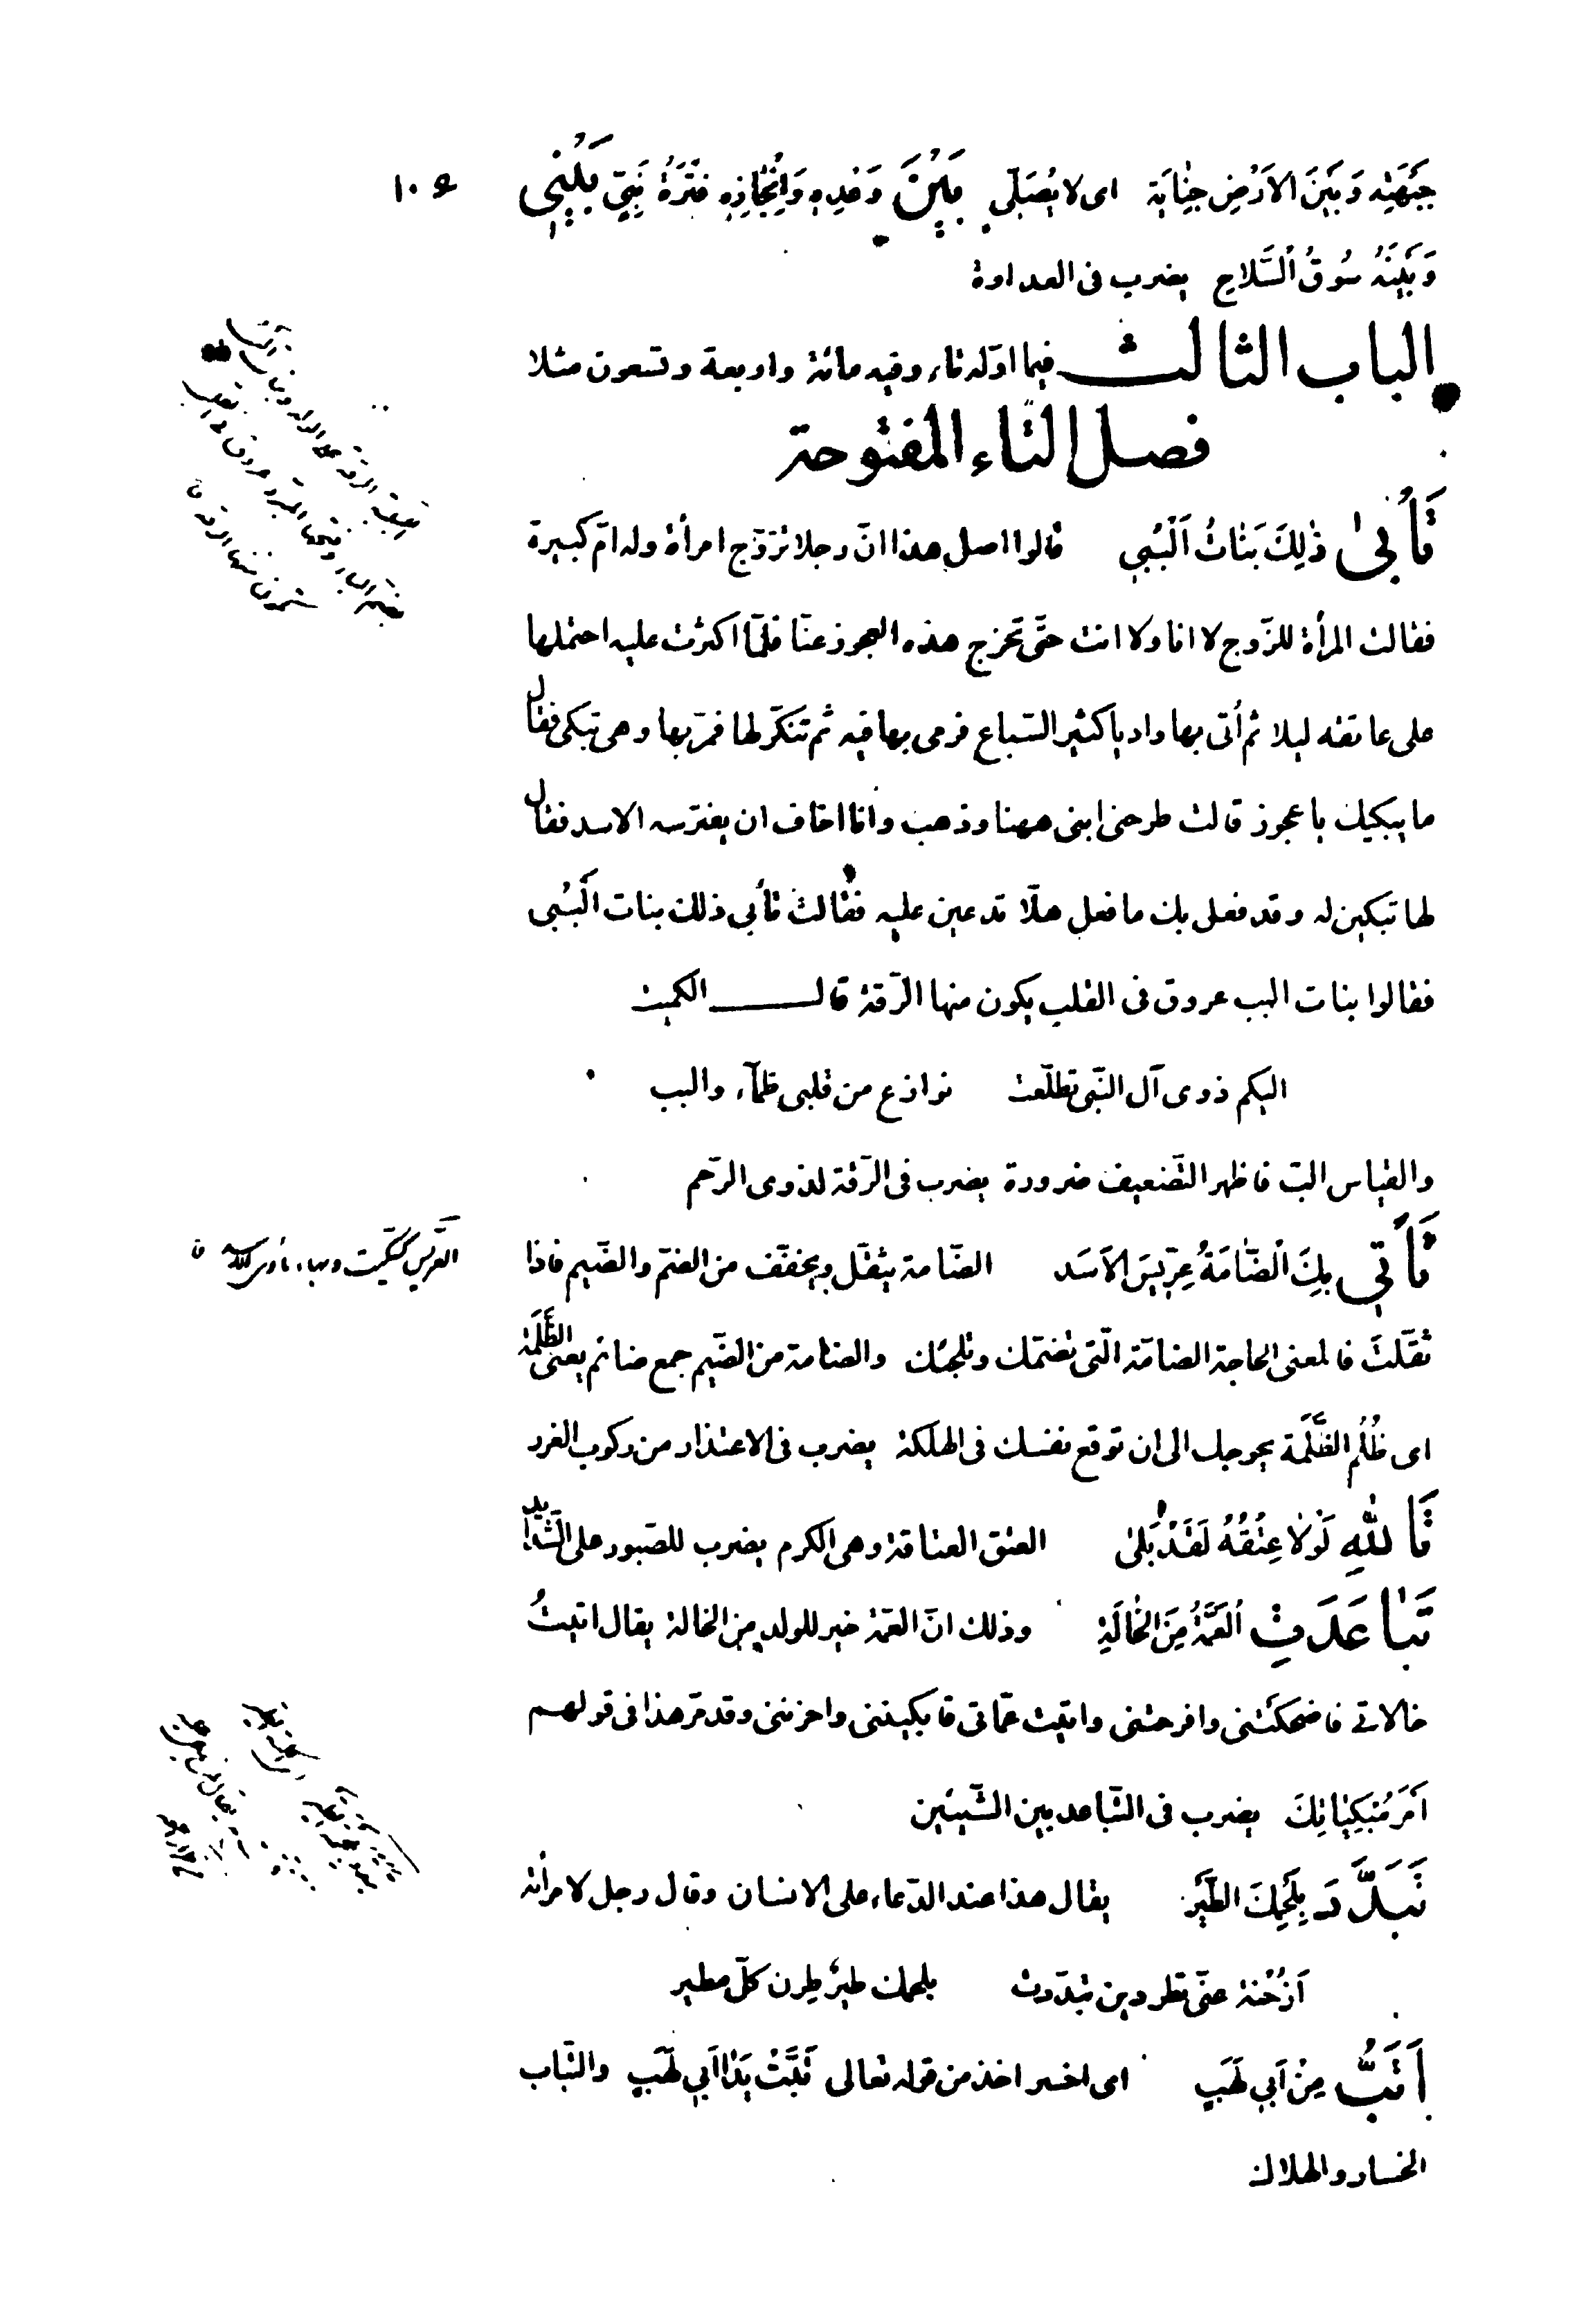 جَبْهَتِهِ وَبَيْنَ الاَرْضِ جِنَايَة اى لا يُصَلّى بَيْنَ وَعْدِهِ وَاِنْجَازِهِ فَتْرَةُ نَبِيٍّ بَيْنِى
وَبَيْنَهُ سُوقُ السِّلاحِ يضرب فى العداوة
الباب الثالث فيما اوّله تاء وفيه مائة واربعة وتسعون مثلا
فصل التاء المفتوحة
تَأْبىٰ ذٰلِكَ بَنَاتُ اَلْبُبِى قالوا اصل هذا انّ رجلا تزوّج امرأة وله امّ كبيرة
فقالت المرأة للزّوج لا انا ولا انت حتّى تخرج هذه العجوز عنّا فلمّا اكثرت عليه احتملها
على عاتقه ليلا ثم أتى بها واديا كثير السّباع فرمى بها فيه ثم تنكّر لها فمرّ بها وهى تبكى فقال
ما يبكيك يا عجوز قالت طرحنى ابنى ههنا وذهب وانا اخاف ان يفترسه الاسد فقال
لها تبكين له وقد فعل بك ما فعل هلّا تدعين عليه فقالت تأبى ذلك بنات اَلْبُبى
فقالوا بنات البب عروق فى القلب يكون منها الرّقة قال الكميت
اليكم ذوى آل النّبى تطلّعت نوازع من قلبى ظمآء والبب
والقياس البّ فاظهر التّضعيف ضرورة يضرب فى الرّقة لذوى الرّحم
تَأْتى بِكَ الضَّامَةُ عِرِّيسَ الاَسَد الضّامة يثقّل ويخفّف من الضمّ والضّيم فاذا
ثقّلتَ فالمعنى الحاجة الضامّة الّتى تضمّك وتلجئك والضامة من الضّيم جمع ضائم يعنى الظَّلَمَة
اى ظُلُم الظَّلَمَة يحوجك الى ان توقع نفسك فى الهلكة يضرب فى الاعتذار من ركوب الغرر
تَاللهِ لَوْلا عِتْقُهُ لَقَدْ بَلىٰ العتق العتاقة وهى الكرم يضرب للصّبور على الشّدائد
تَبَاعَدَتِ العَمَّةُ مِنَ الخَالَةِ وذلك انّ العمّة خير للولد من الخالة يقال اتيتُ
خالاتى فاضحكننى وافرحننى واتيت عمّاتى فابكيننى واحزننى وقد مرّ هذا فى قولهم
اَمْرَ مُبْكِيَاتِكَ يضرب فى التّباعد بين الشّيئين
تَبَلَّدَ بِلَحْمِكَ الطَّيْرُ يقال هذا عند الدّعاء على الانسان وقال رجل لامرأته
اَزُحْنَة عنّى تطردين تبدّدت بلحمك طيرٌ طرن كلّ مطير
اَتَبُّ مِنْ اَبى لَهَبٍ اى اخسر اخذ من قوله تعالى تَبَّتْ يَدَا اَبى لَهَبٍ والتّباب
الخسار والهلاك